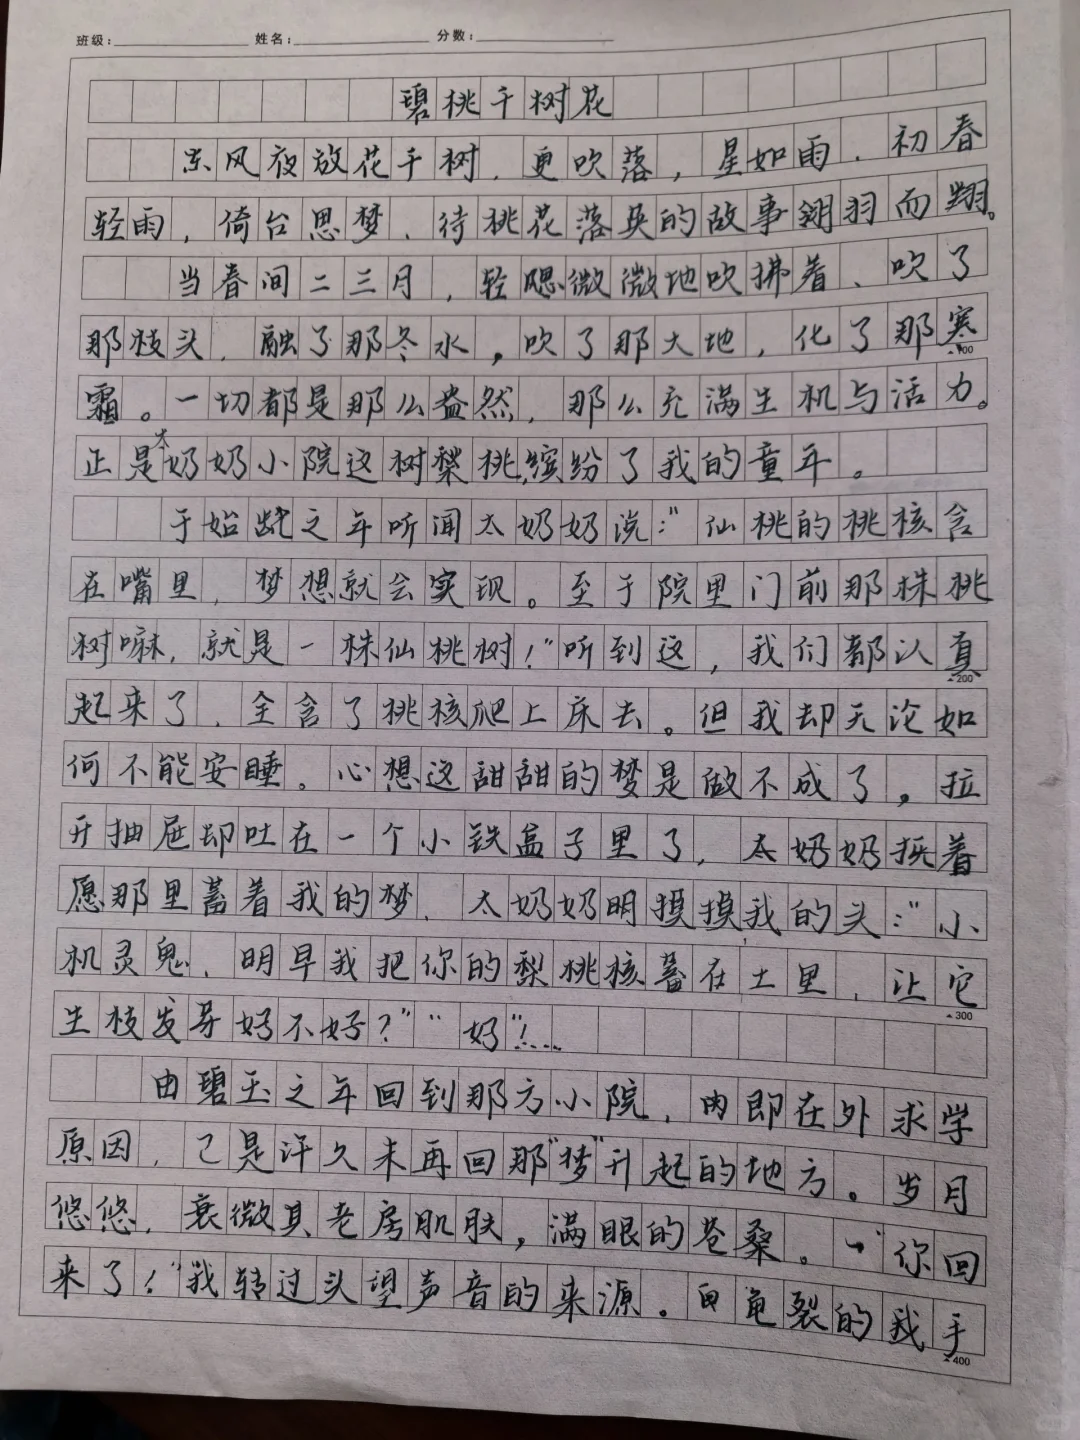 班级: 姓名: 分数:
碧桃千树花
东风夜放花千树.更吹落,星如雨.初春
轻雨,倚台思梦.待桃花落英的故事翱羽而翔。
当春间二三月,轻飔微微地吹拂着、吹了
那枝头.融了那冬水,吹了那大地,化了那寒
100
霜。一切都是那么盎然,那么充满生机与活力。
正是太奶奶小院这树桃,缤纷了我的童年。
于始龀之年听闻太奶奶说:"仙桃的桃核含
在嘴里,梦想就会实现。至于院里门前那株桃
树嘛,就是一株仙桃树!"听到这,我们都认真
200
起来了,全含了桃核爬上床去。但我却无论如
何不能安睡。心想这甜甜的梦是做不成了,拉
开抽屉却吐在一个小铁盒子里了,太奶奶抚着
愿那里蓄着我的梦.太奶奶明摸摸我的头:"小
机灵鬼、明早我把你的梨桃核蓄在土里,让它
300
生枝发芽好不好?""好"!...
由碧玉之年回到那方小院,即在外求学
原因,已是许久未再回那"梦"升起的地方。岁月
悠悠,衰微其老房肌肤,满眼的苍桑。一"你回
来了!"我转过头望声音的来源。龟裂的我手
400